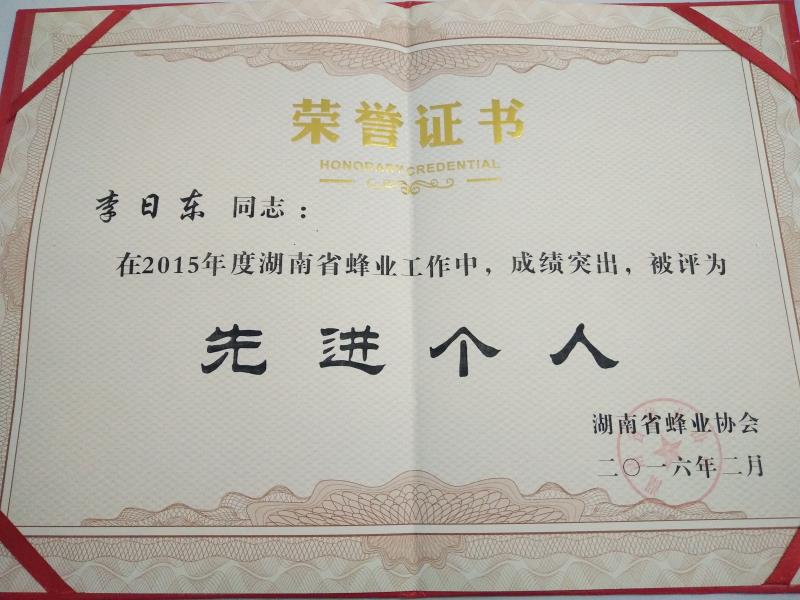 荣誉证书
HONORARY CREDENTIAL
李日东 同志：
在2015年度湖南省蜂业工作中，成绩突出，被评为
先进个人
湖南省蜂业协会
二〇一六年二月